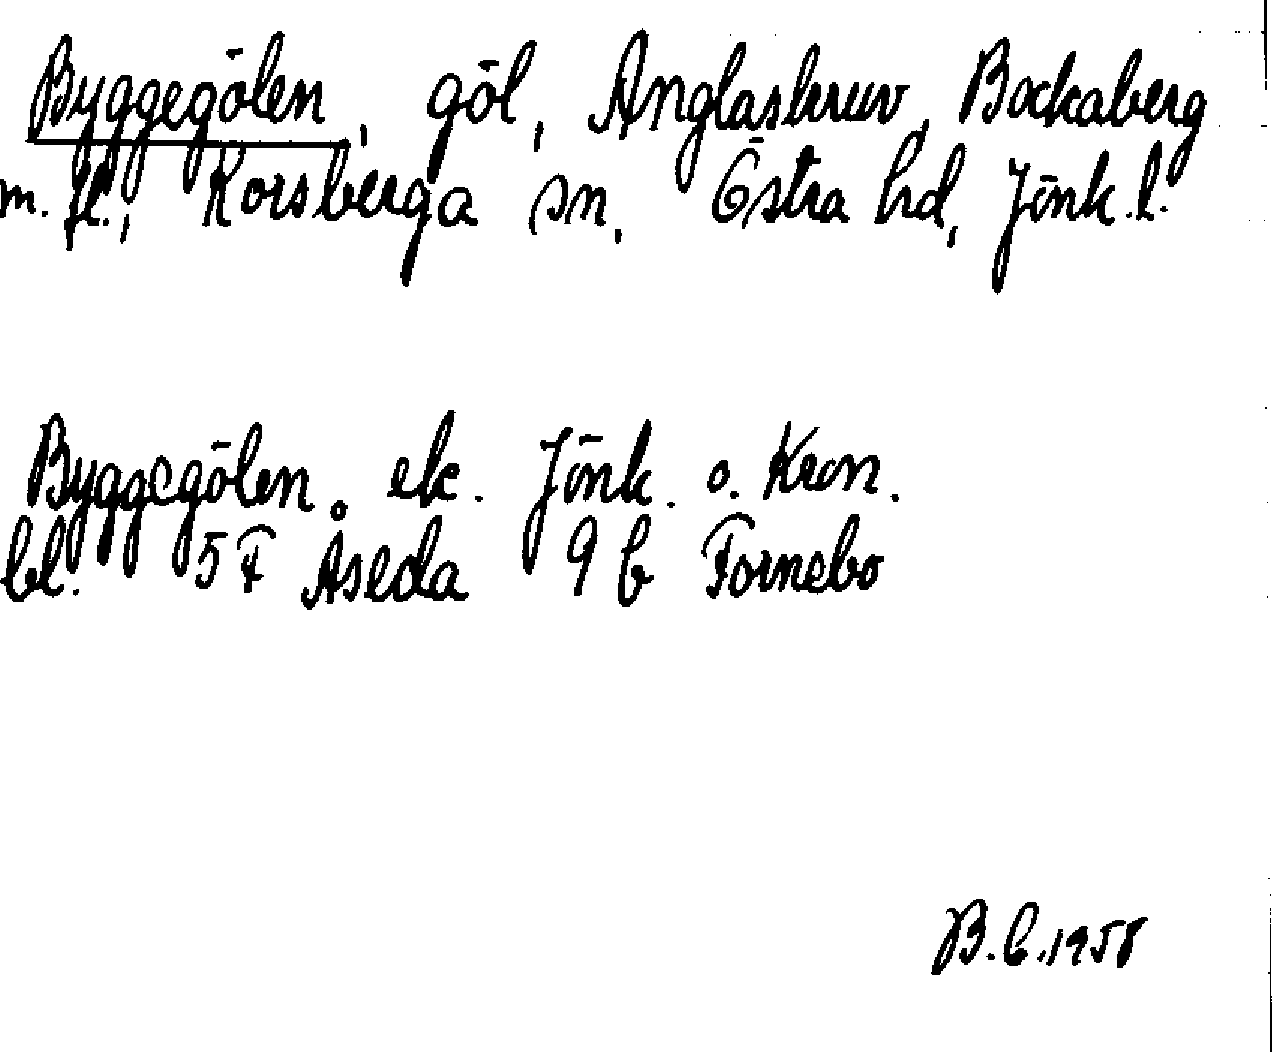 Byggegölen, göl, Anglaskruv, Bockaberg
m. fl., Korsberga sn, Östra hd, Jönk. l.
Byggegölen, ek. Jönk. o. Kron.
bl. 5 F Åseda 9 b Fornebo
B.C. 1958